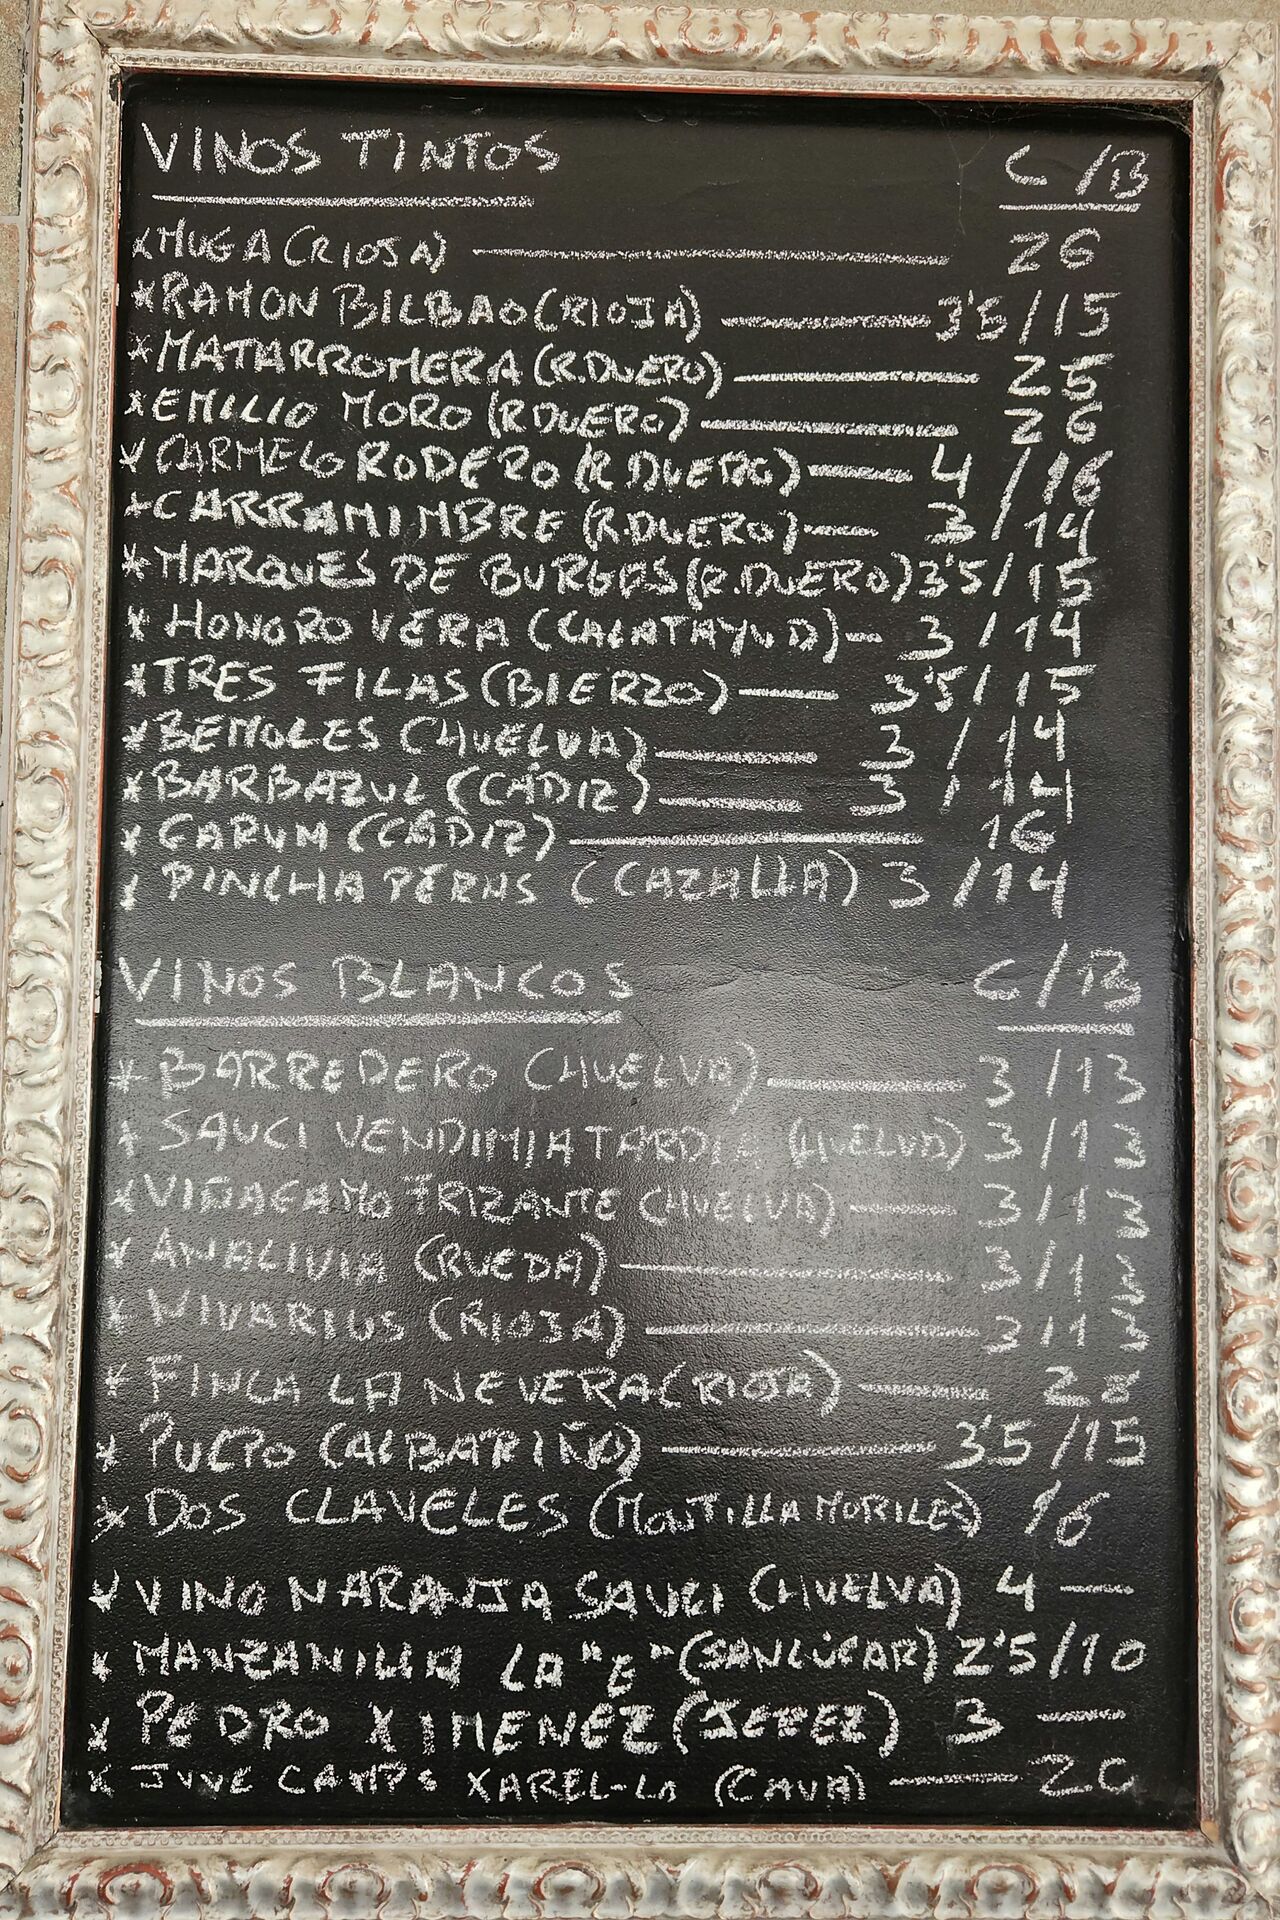 VINOS TINTOS C/B
*MUGA (RIOJA) 26
*RAMON BILBAO (RIOJA) 3'5/15
*MATARROMERA (R.DUERO) 25
*EMILIO MORO (R DUERO) 26
*CARMELO RODERO (R.DUERO) 4/16
*CARRAMIMBRE (R.DUERO) 3/14
*MARQUES DE BURGOS (R.DUERO) 3'5/15
*HONORO VERA (CALATAYUD) 3/14
*TRES FILAS (BIERZO) 3'5/15
*BEMOLES (HUELVA) 3/14
*BARBAZUL (CÁDIZ) 3/14
*GARUM (CÁDIZ) 16
*PINCHAPERAS (CAZALLA) 3/14
VINOS BLANCOS C/B
*BARREDERO (HUELVA) 3/13
*SAUCI VENDIMIA TARDIA (HUELVA) 3/13
*VIÑAGAMO FRIZANTE (HUELVA) 3/13
*ANALIVIA (RUEDA) 3/13
*VIVARIUS (RIOJA) 3/13
*FINCA LA NEVERA (RIOJA) 28
*PULPO (ALBARIÑO) 3'5/15
*DOS CLAVELES (MONTILLA MORILES) 16
*VINO NARANJA SAUCI (HUELVA) 4 —
*MANZANILLA LA "E" (SANLÚCAR) 2'5/10
*PEDRO XIMENEZ (JEREZ) 3 —
*JUVE CAMPS XAREL-LO (CAVA) 20